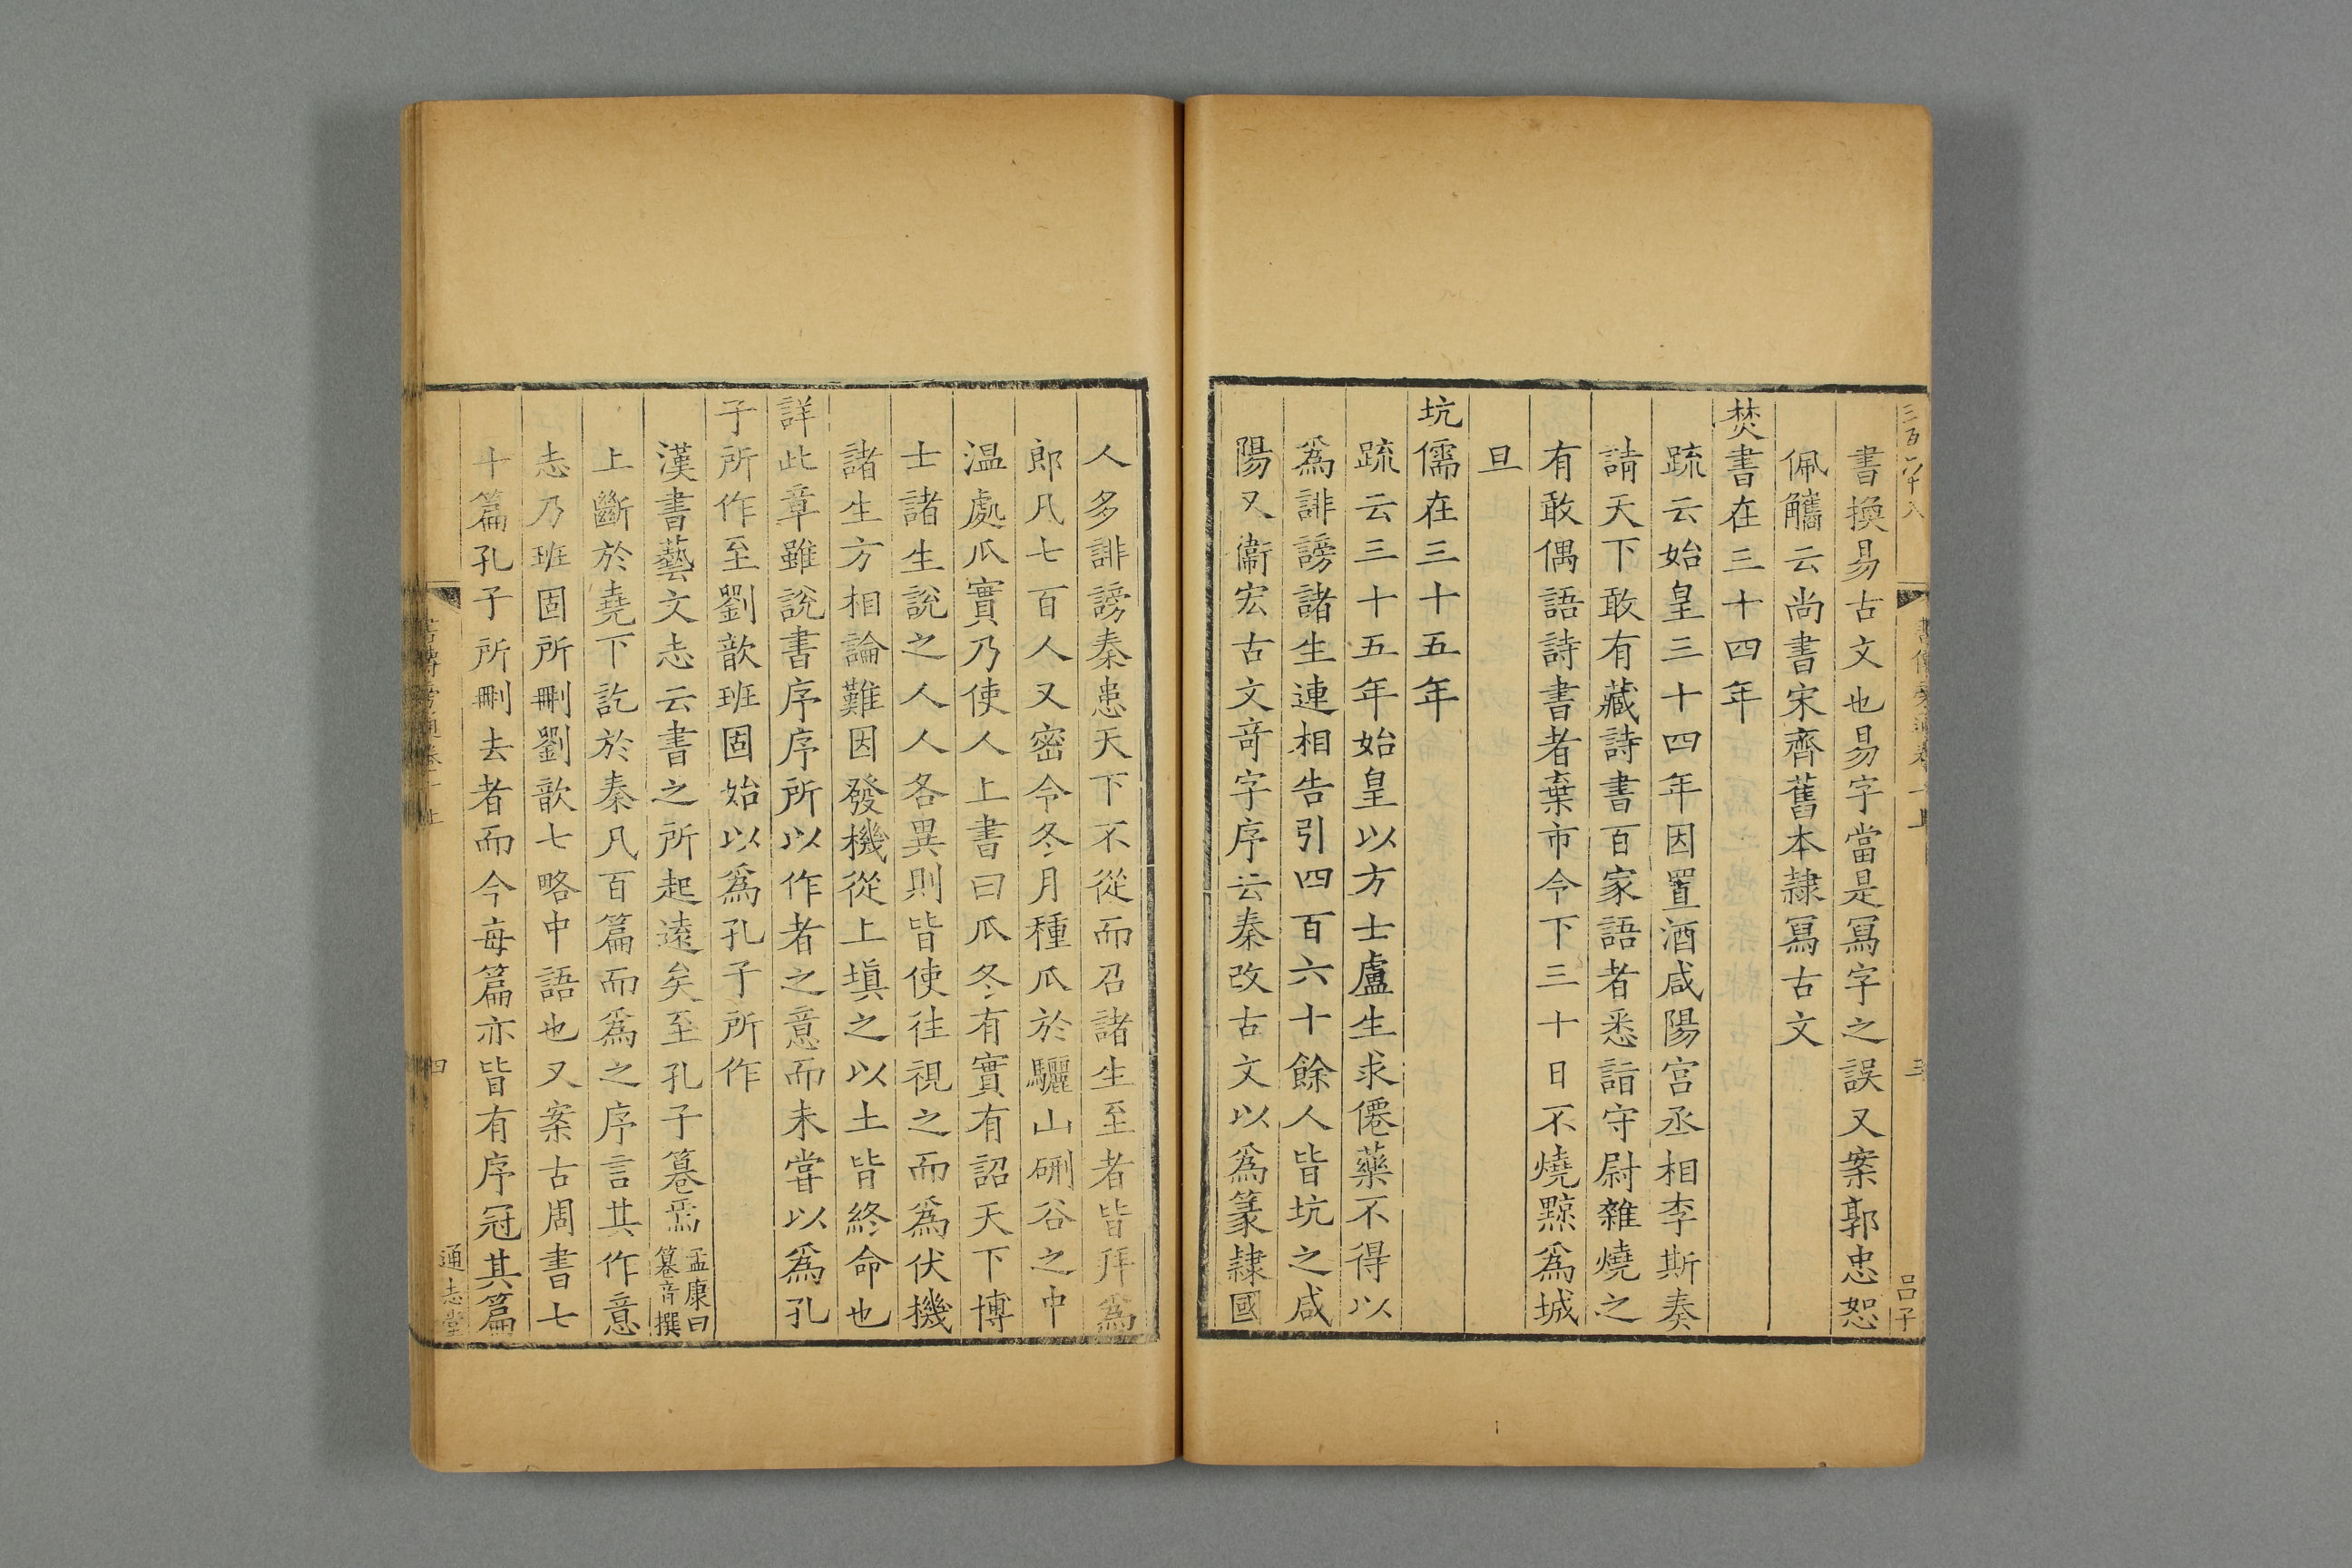 書換易古文也易字當是冩字之誤又案郭忠恕
佩觿云尚書宋齊舊本隷冩古文
焚書在三十四年
疏云始皇三十四年因置酒咸陽宫丞相李斯奏
請天下敢有藏詩書百家語者悉詣守尉雜燒之
有敢偶語詩書者棄市令下三十日不燒黥爲城
旦
坑儒在三十五年
疏云三十五年始皇以方士盧生求僊藥不得以
爲誹謗諸生連相告引四百六十餘人皆坑之咸
陽又衞宏古文竒字序云秦改古文以爲篆隷國
人多誹謗秦患天下不從而召諸生至者皆拜爲
郎凡七百人又密令冬月種瓜於驪山硎谷之中
温處瓜實乃使人上書曰瓜冬有實有詔天下博
士諸生說之人人各異則皆使徃視之而爲伏機
諸生方相論難因發機從上填之以土皆終命也
詳此章雖說書序序所以作者之意而未甞以爲孔
子所作至劉歆班固始以爲孔子所作
漢書藝文志云書之所起遠矣至孔子篹焉孟康曰篹音撰
上斷於堯下訖於秦凡百篇而爲之序言其作意
志乃班固所刪劉歆七略中語也又案古周書七
十篇孔子所刪去者而今每篇亦皆有序冠其篇
四
通志堂